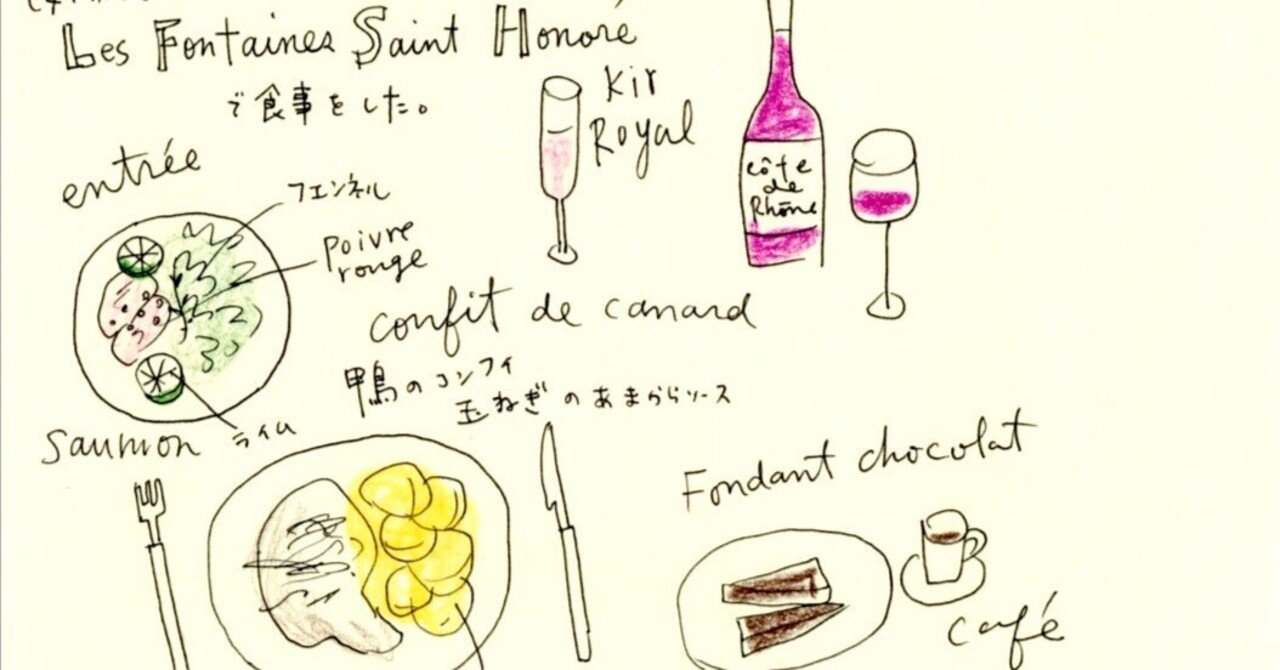 Les Fontaines Saint Honoré
で食事をした。
Kir
Royal
côte
de
Rhône
entrée
フエンネル
poivre
rouge
confit de canard
鴨のコンフィ
玉ねぎのあまからソース
saumon
ライム
Fondant chocolat
café